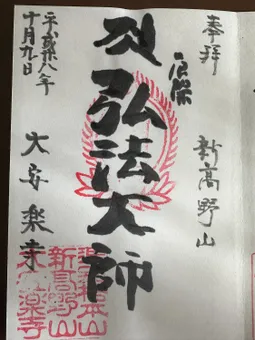 奉拝
新高野山
弘法大師
大安楽寺
平成廿八年
十月九日
新高野山
楽寺